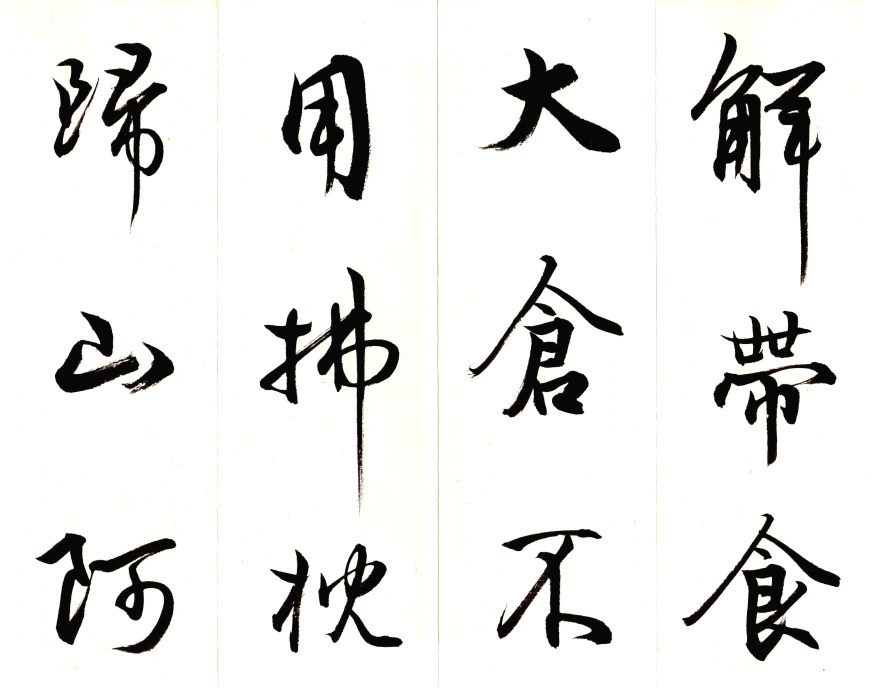 解帶食
大倉不
用拂枕
歸山阿